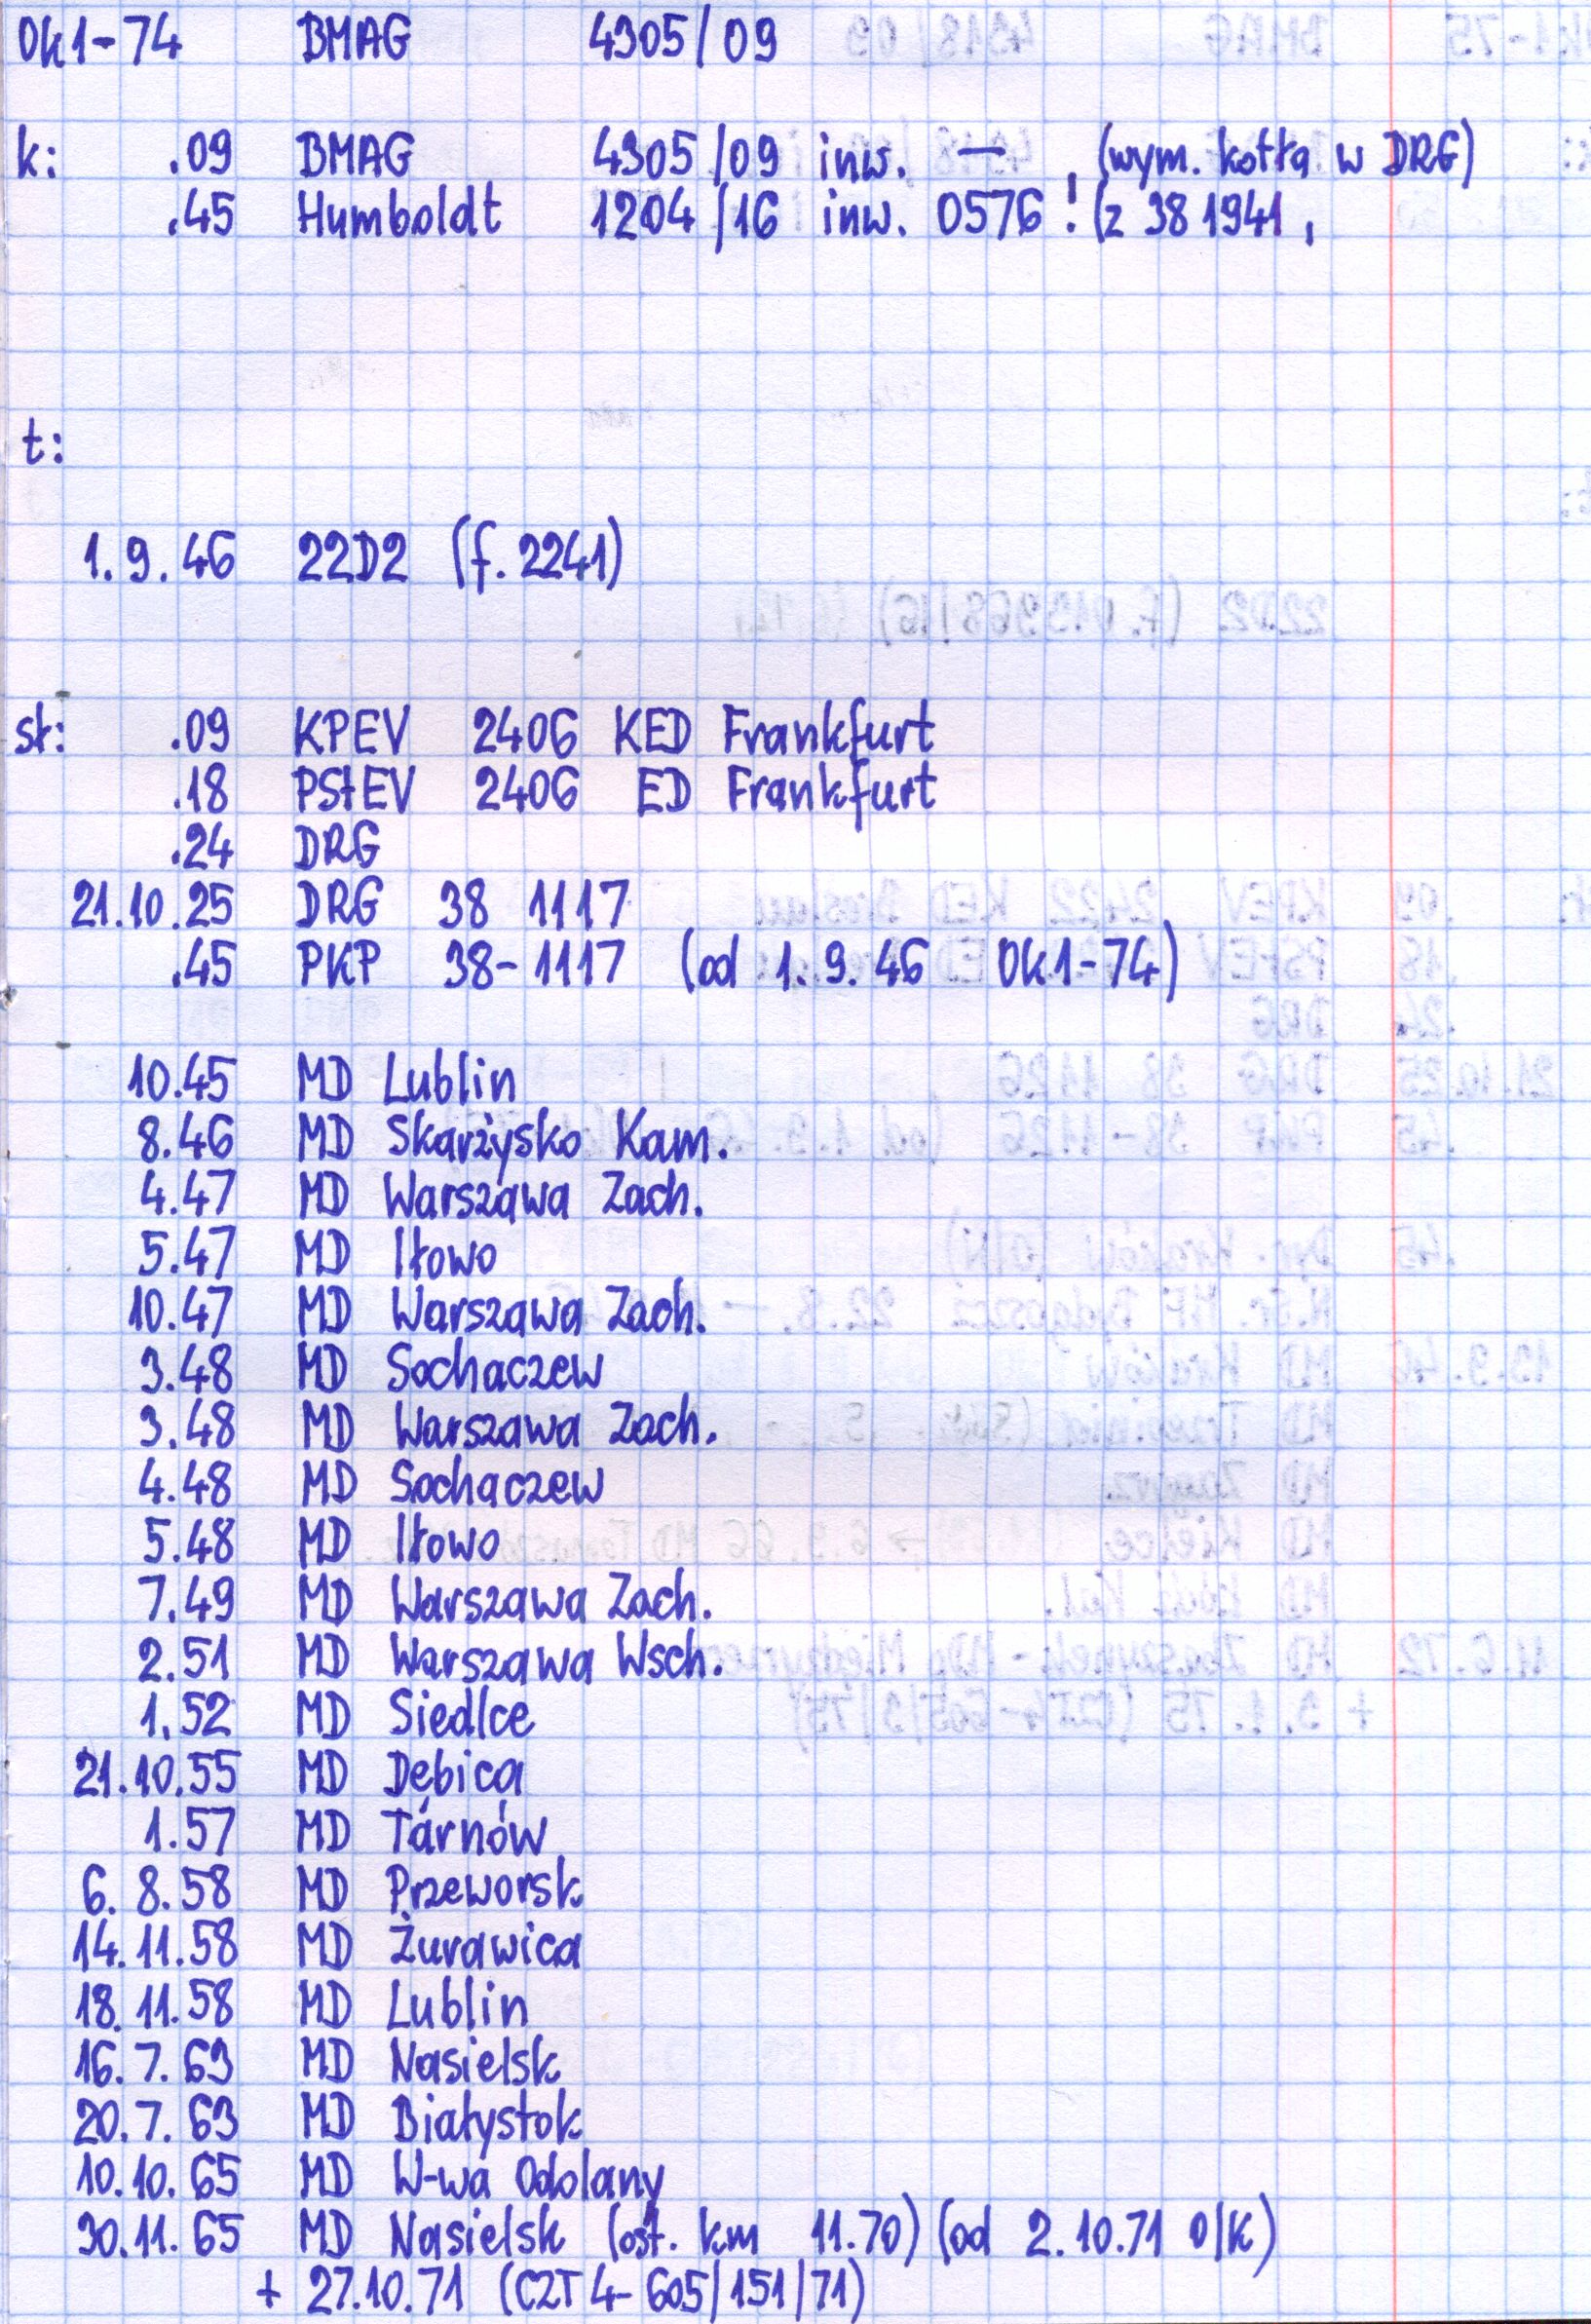 Ok1-74 BMAG 4305/09
k: .09 BMAG 4305/09 inw. — (wym. kotła w DRG)
.45 Humboldt 1204/16 inw. 0576 ! (z 38 1941,
t:
1.9.46 22D2 (f. 2241)
st: .09 KPEV 2406 KED Frankfurt
.18 PStEV 2406 ED Frankfurt
.24 DRG
21.10.25 DRG 38 1117
.45 PKP 38-1117 (od 1.9.46 Ok1-74)
10.45 MD Lublin
8.46 MD Skarżysko Kam.
4.47 MD Warszawa Zach.
5.47 MD Iłowo
10.47 MD Warszawa Zach.
3.48 MD Sochaczew
3.48 MD Warszawa Zach.
4.48 MD Sochaczew
5.48 MD Iłowo
7.49 MD Warszawa Zach.
2.51 MD Warszawa Wsch.
1.52 MD Siedlce
21.10.55 MD Dębica
1.57 MD Tarnów
6.8.58 MD Przeworsk
14.11.58 MD Żurawica
18.11.58 MD Lublin
16.7.63 MD Nasielsk
20.7.63 MD Białystok
10.10.65 MD W-wa Odolany
30.11.65 MD Nasielsk (ost. km 11.70) (od 2.10.71 O/K)
+ 27.10.71 (CZT4-605/151/71)